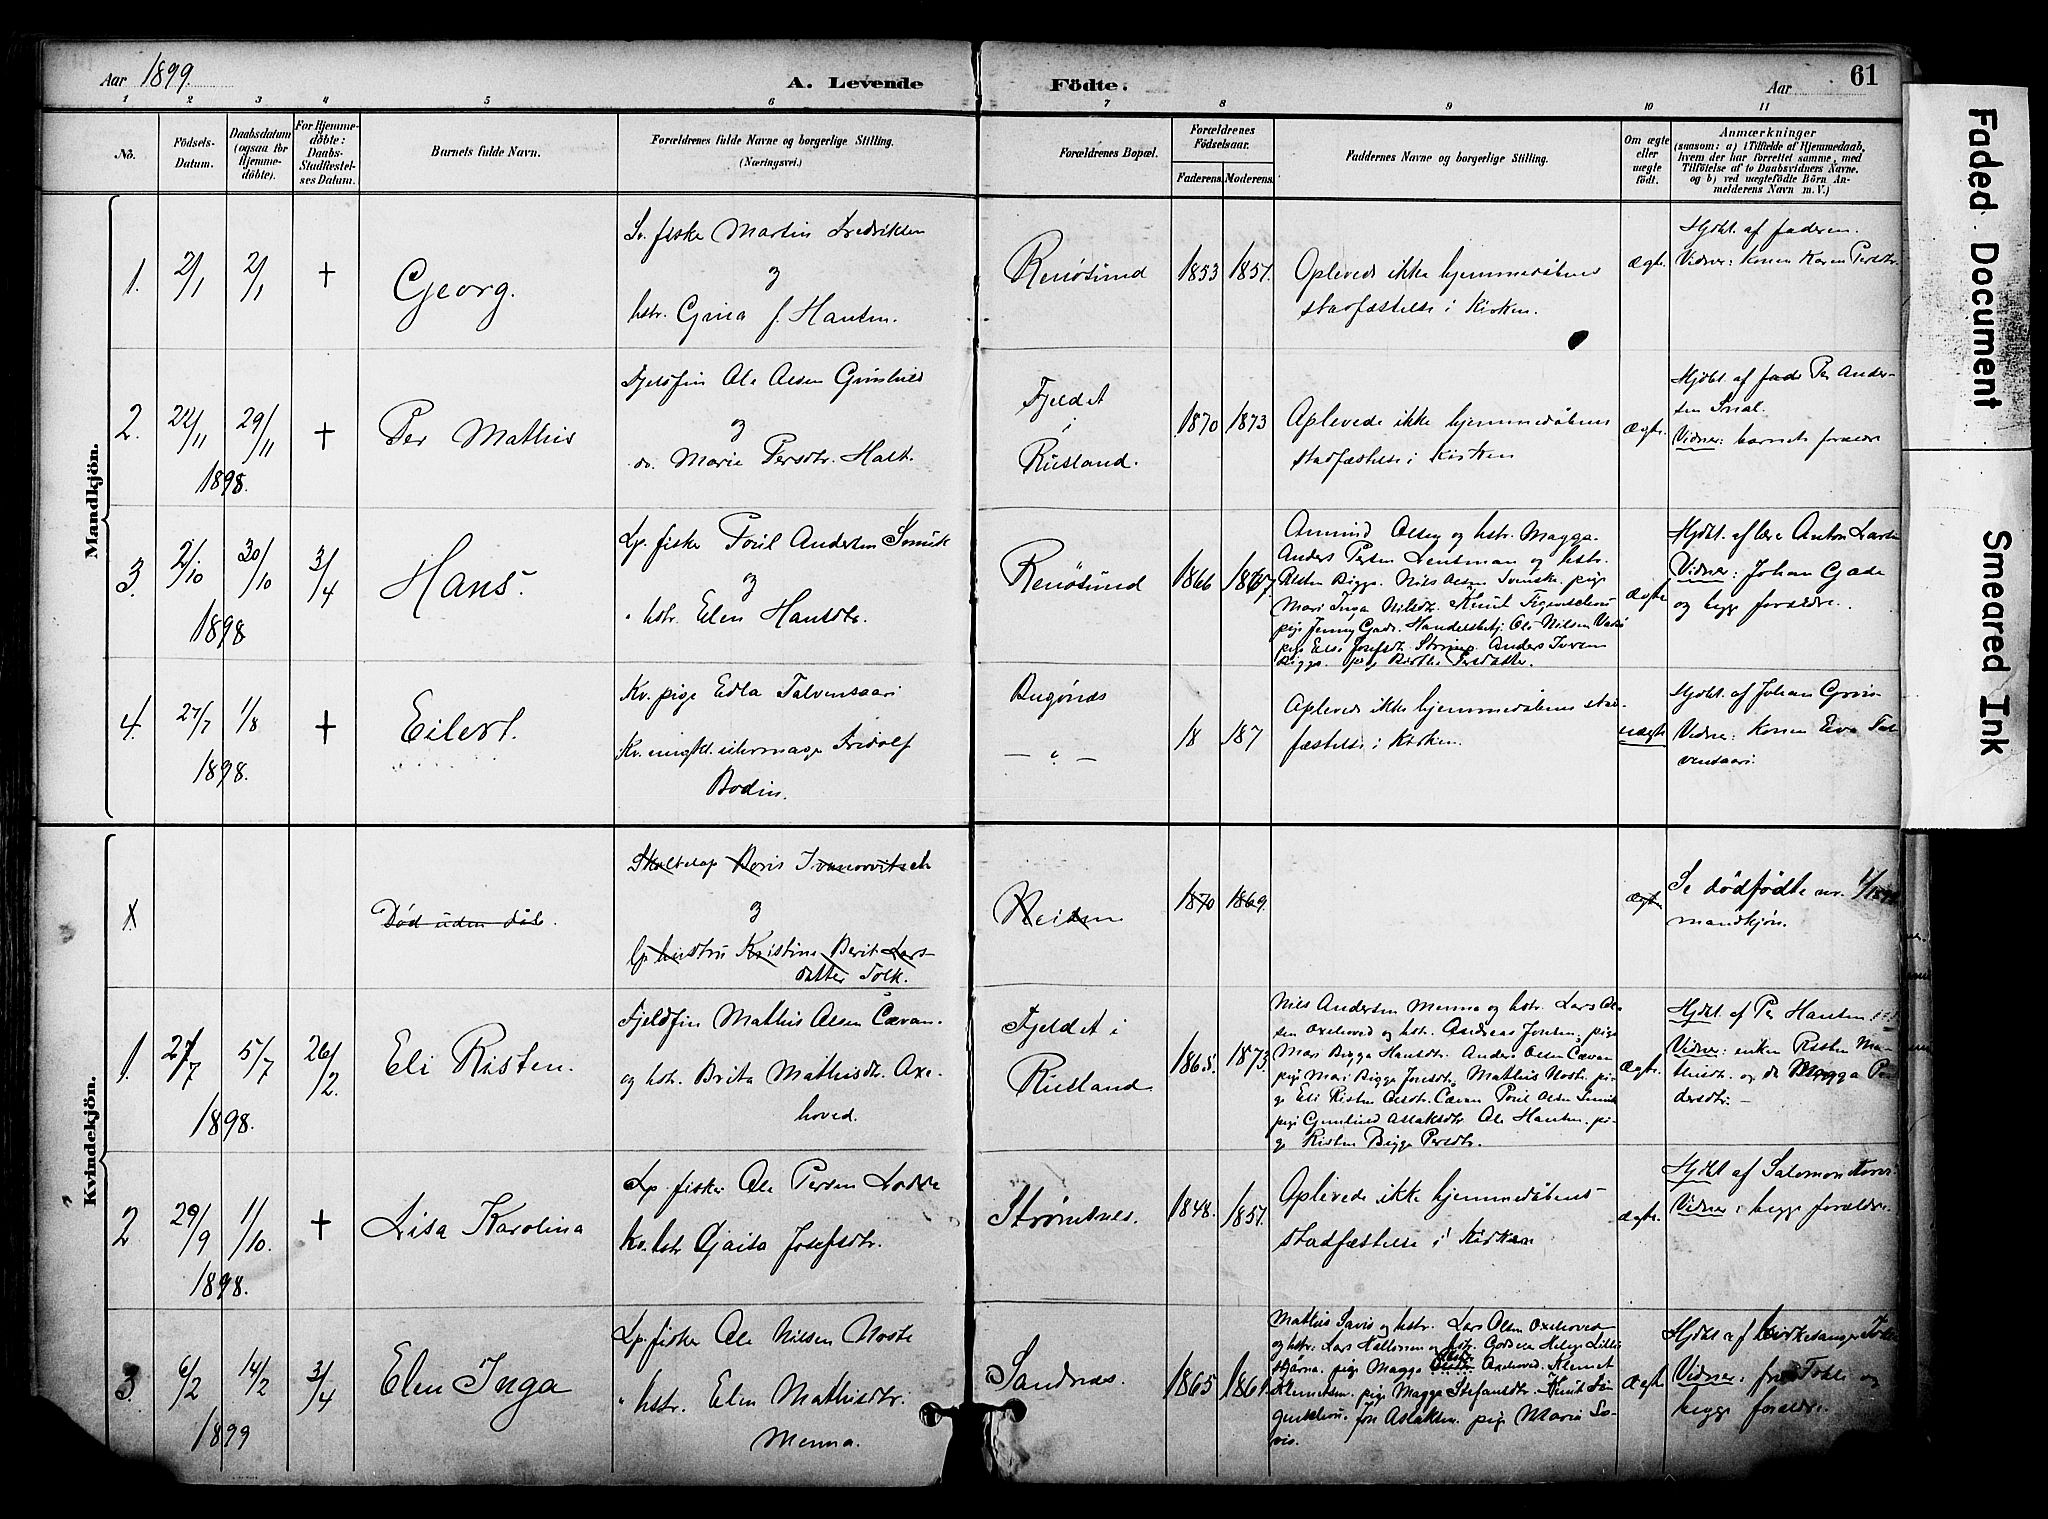 Aar 1899.
A. Levende
Födte.
Aar
61
1 2 3 4 5 6 7 8 9 10 11
No.
Födsels-Datum.
Daabsdatum (ogsaa for Hjemmedöbte).
For Hjemmedöbte: Daabs-Stadfæstelses Datum.
Barnets fulde Navn.
Forældrenes fulde Navne og borgerlige Stilling.
(Næringsvei.)
Forældrenes Bopæl.
Forældrenes Födselsaar.
Faderens. Moderens.
Faddernes Navne og borgerlige Stilling.
Om ægte eller uægte födt.
Anmærkninger
(saasom: a) i Tilfælde af Hjemmedaab,
hvem der har forrettet samme, med
Tilföielse af to Daabsvidners Navne.
og b) ved uægtefödte Börn An-
melderens Navn m. V.)
Mandkjön.
1. 2/1 2/1 † Georg.
fisker Martin Fredriksen
og
hstr. Grina f. Hansen.
Renøsund 1853 1857.
Oplevede ikke hjemmedåbens
stadfæstelse i Kirken.
ægte.
Hjdbt. af faderen.
Vidner: Konen Karen Persdtr.
2. 22/11 29/11 † Per Mathis
1898.
Fjeldfin Ole Olsen
og
Marie Persdtr. Halt.
Fjeldet
i
Rusland.
1870 1873
Oplevede ikke hjemmedåbens
stadfæstelse i Kirken
ægte.
Hjdbt. af Per Ander-
sen
Vidner: barnets forældre
3. 2/10 30/10 3/4 Hans.
1898
Lp. fisker Poul Andersen
og
" hstr. Elen Hansdtr.
Renøsund 1866 1867.
Amund Olsen og hstr. Magga.
Anders Persen og hstr.
Nils Olsen pige
Mari Inga Nilsdtr. Knut
pige Jenny Gade. Ole Nilsen
Anders
ægte
Hjdbt. af Anton Larsen
Vidner: Johan Gade
og begge forældre.
4. 27/7 1/8 † Eilert.
1898.
Kv. pige Edla Talvensaari
Kv. ungkl. Fridolf
Bodin.
Bugønæs
— " —
18 187
Oplevede ikke hjemmedåbens stad-
fæstelse i Kirken.
uægte
Hjdbt. af Johan
Vidner: Konen Eva Tal-
vensaari.
Kvindekjön.
Død uden dåb.
Skoltelap Boris Ivanowitsch
og
Lp hustru Kristine Berit Lars-
datter Tolk.
Neiden
1870 1869.
ægte
Se dødfødte nr. 1/1899
mandkjøn.
1. 27/7 5/7 26/2 Eli Risten.
1898.
Fjeldfin Mathis Olsen Cævan.
og hstr. Brita Mathisdtr. Oxe-
hoved.
Fjeldet i
Rusland
1865. 1873.
Nils Andersen Menna og hstr. Lars Ol-
sen Oxehoved og hstr. Andreas Jonsen, pige
Mari Bigga Hansdtr. Anders Olsen Cævan
pige Mari Bigga Jonsdtr. Mathis Noste pi-
ge Eli Risten Olsdtr. Cævan Poul Olsen
pige Gunhild Aslaksdtr. Ole Hansen. pi-
ge Risten Bigga Persdtr.
ægte.
Hjdbt. af Per Hansen
Vidner: enken Risten Ma-
thisdtr. og Magga
dersdtr. —
2. 29/9 1/10. † Lisa Karolina
1898.
Lp. fisker Ole Persen
Kv. hstr Gaisa Josefsdtr.
Strømsnes. 1848. 1857.
Oplevede ikke hjemmedåbens
stadfæstelse i Kirken
ægte.
Hjdbt. af Salomon
Vidner: begge forældre.
3. 6/2 14/2 3/4 Elen Inga
1899
Lp. fisker Ole Nilsen Noste
" hstr. Elen Mathisdtr.
Menna.
Sandnæs. 1865 1861.
Mathis Savis og hstr. Lars Olsen Oxehoved
og hstr. Lars
pige Magga Oxehoved. Klemet
Klemetsen. pige Magga Stefansdtr. Knut
Jon Aslaksen. pige Marie Sa-
vis.
ægte
Hjdbt. af kirkesanger
Vidner: fru og
begge forældre.
Faded Document
Smeared Ink